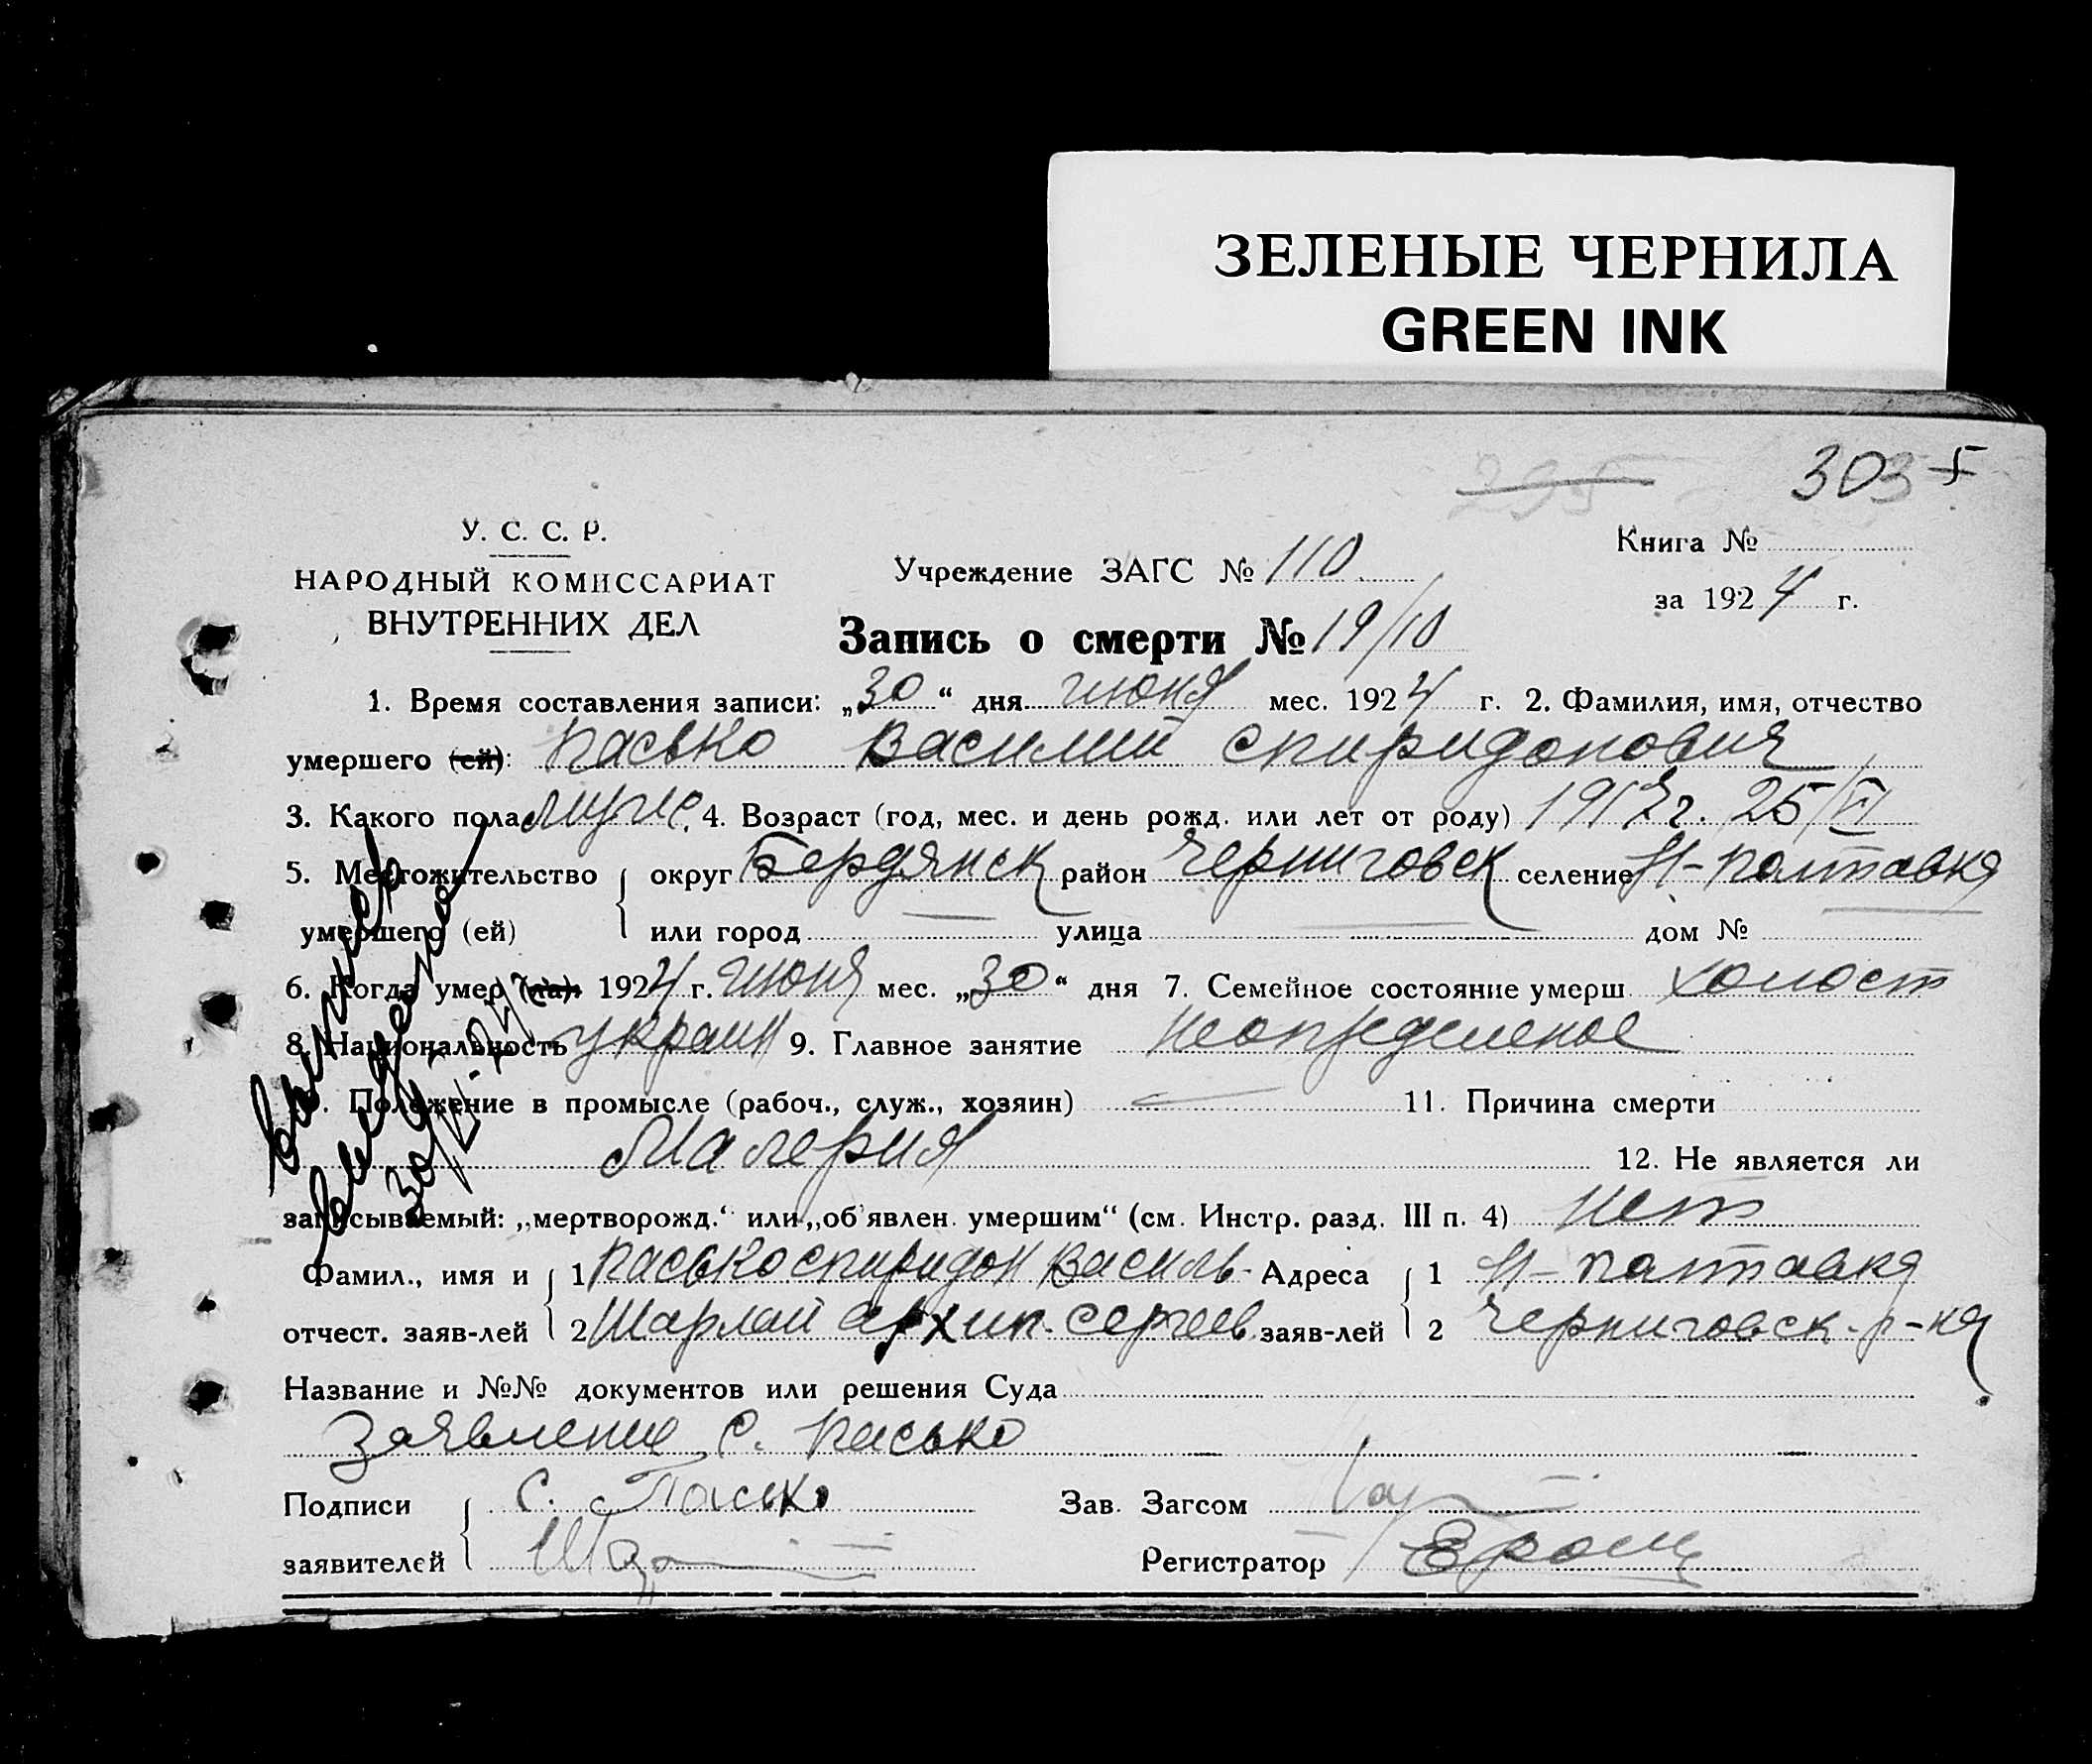 ЗЕЛЕНЫЕ ЧЕРНИЛА
GREEN INK
295
303
У. С. С. Р.
НАРОДНЫЙ КОМИССАРИАТ
ВНУТРЕННИХ ДЕЛ
Учреждение ЗАГС № 110
Книга №
за 1924 г.
Запись о смерти № 19/10
1. Время составления записи: „30“ дня июня мес. 1924 г. 2. Фамилия, имя, отчество
умершего (ей): Пасько Василий Спиридонович
3. Какого пола мужс. 4. Возраст (год, мес. и день рожд. или лет от роду) 1917 г. 25/VI
5. Местожительство умершего (ей) округ Бердянск район Черниговск селение Н-Полтавка
или город улица дом №
6. Когда умер (ла): 1924 г. июня мес. „30“ дня 7. Семейное состояние умерш. холост
8. Национальность украин 9. Главное занятие неопределеное
10. Положение в промысле (рабоч., служ., хозяин) 11. Причина смерти
Малерия 12. Не является ли
записываемый: „мертворожд.“ или „об'явлен. умершим“ (см. Инстр. разд. III п. 4) нет
Фамил., имя и отчест. заяв-лей 1 Пасько Спиридон Василь- Адреса заяв-лей 1 Н-Полтавка
2 Шарлай Архип. Сергеев. 2 Черниговск. р-на
Название и №№ документов или решения Суда
Заявление С. Пасько
Подписи заявителей С. Пасько Зав. Загсом
Регистратор
выписка
выдана